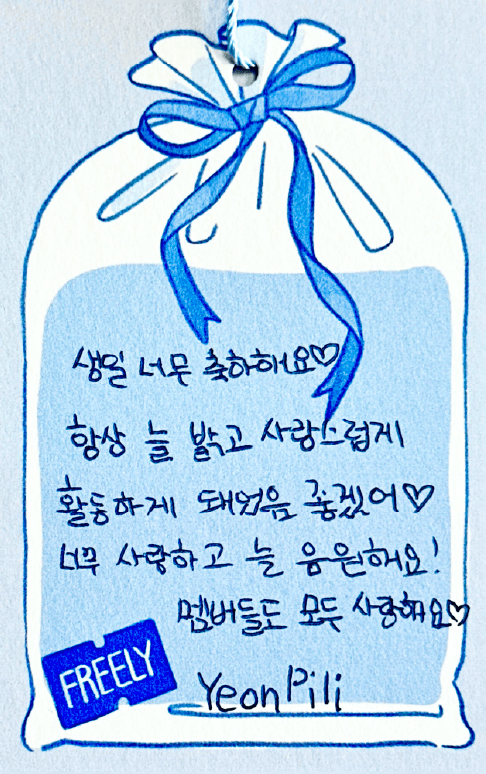 생일 너무 축하해요♡
항상 늘 밝고 사랑스럽게
활동하게 돼었음 좋겠어♡
너무 사랑하고 늘 응원해요!
멤버들도 모두 사랑해요♡
FREELY
YeonPili